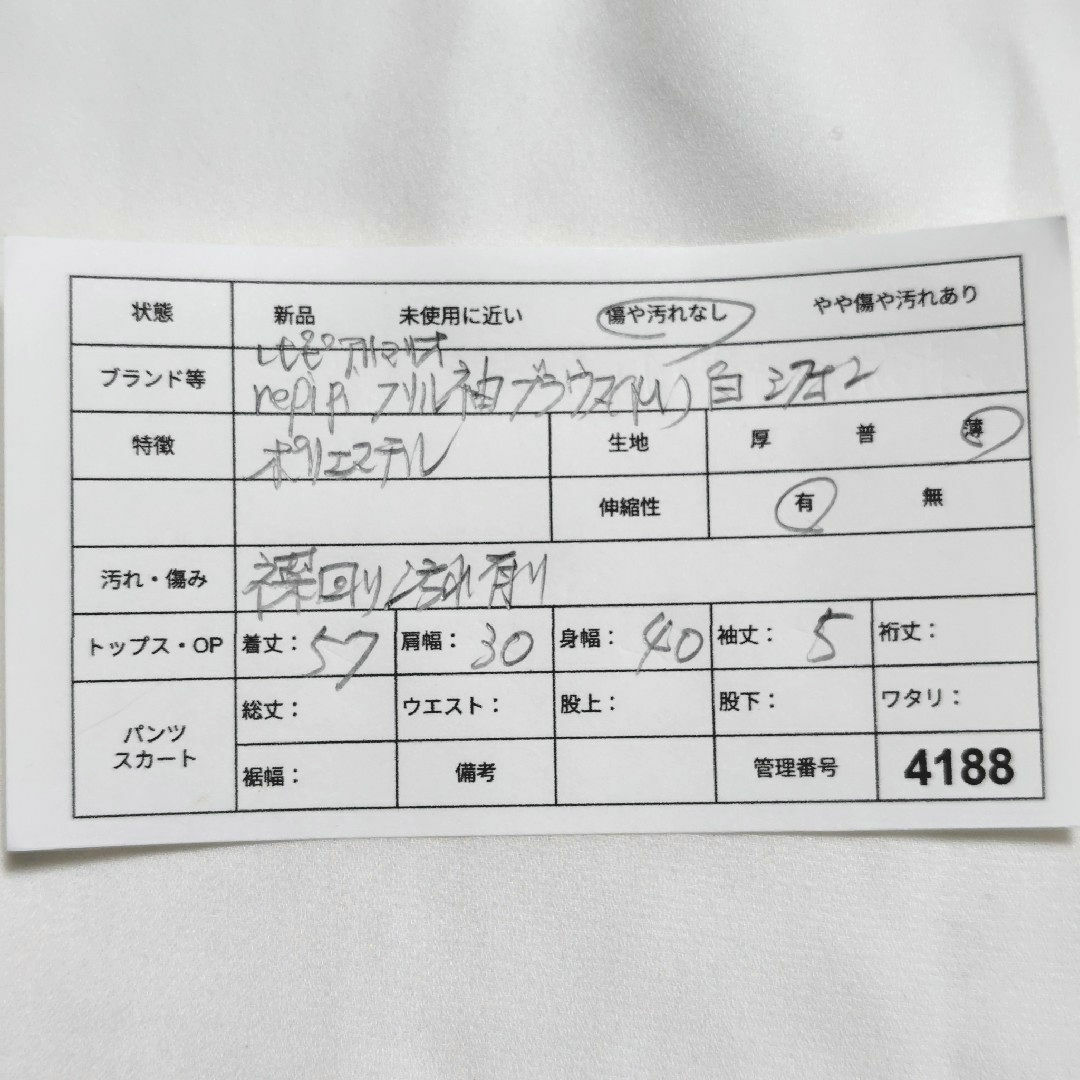 状態 新品 未使用に近い 傷や汚れなし やや傷や汚れあり
レピピアルマリオ
ブランド等 repipi フリル袖ブラウス(M) 白 シフォン
特徴 ポリエステル 生地 厚 普 薄
伸縮性 有 無
汚れ・傷み 襟回り汚れ有り
トップス・OP 着丈: 57 肩幅: 30 身幅: 40 袖丈: 5 裄丈:
パンツ スカート 総丈: ウエスト: 股上: 股下: ワタリ:
裾幅: 備考 管理番号 4188